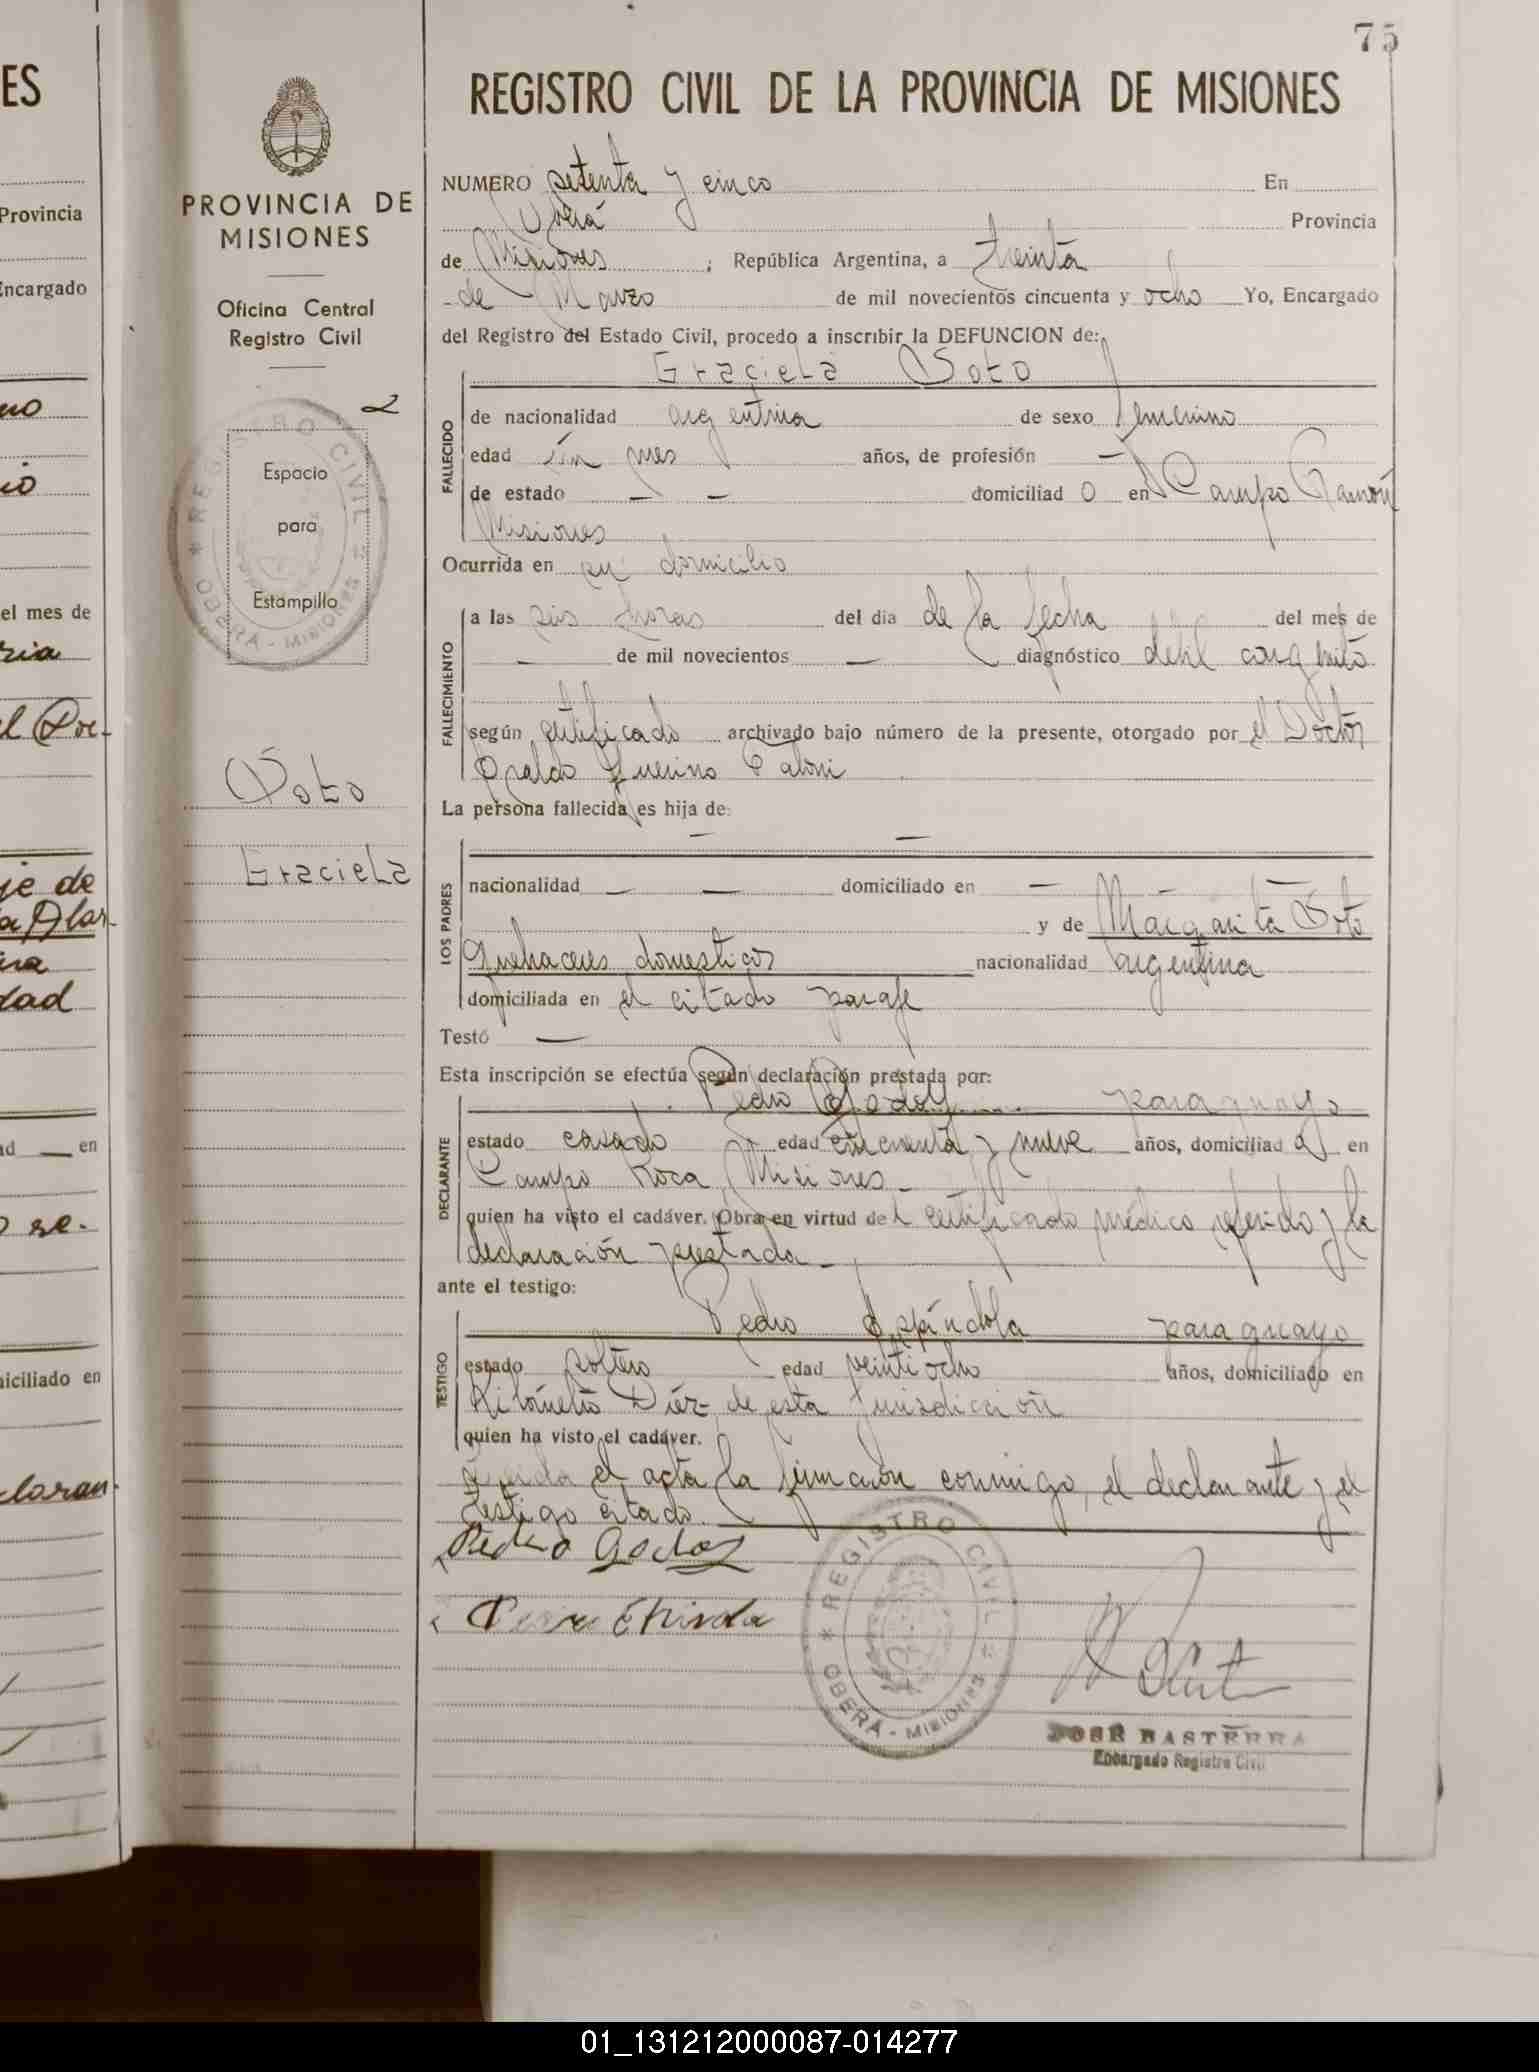 75
ES
REGISTRO CIVIL DE LA PROVINCIA DE MISIONES
PROVINCIA DE
MISIONES
Oficina Central
Registro Civil
2
REGISTRO CIVIL
OBERÁ - MISIONES
Espacio
para
Estampilla
Soto
Graciela
NUMERO setenta y cinco En
Oberá Provincia
de Misiones ; República Argentina, a treinta
de Marzo de mil novecientos cincuenta y ocho Yo, Encargado
del Registro del Estado Civil, procedo a inscribir la DEFUNCION de:
Graciela Soto
FALLECIDO
de nacionalidad argentina de sexo femenino
edad Un mes años, de profesión —
de estado — — domiciliad o en Campo Ramón
Misiones
Ocurrida en su domicilio
FALLECIMIENTO
a las seis horas del dia de la fecha del mes de
— de mil novecientos — diagnóstico debil congenito
según certificado archivado bajo número de la presente, otorgado por el Doctor
Osaldo Guerino
La persona fallecida es hija de:
— —
LOS PADRES
nacionalidad — — domiciliado en — —
y de Margarita Soto
Quehaceres domesticos nacionalidad argentina
domiciliada en el citado paraje
Testó —
Esta inscripción se efectúa según declaración prestada por:
Pedro Godoy paraguayo
DECLARANTE
estado casado edad cincuenta y nueve años, domiciliad o en
Campo Roca Misiones
quien ha visto el cadáver. Obra en virtud del certificado médico referido y la
declaración prestada
ante el testigo:
Pedro Espíndola paraguayo
TESTIGO
estado soltero edad veintiocho años, domiciliado en
Kilómetro Diéz de esta jurisdicción
quien ha visto el cadáver.
Leida el acta la firmaron conmigo, el declarante y el
testigo citado.
Pedro Godoy
REGISTRO CIVIL
OBERÁ - MISIONES
JOSÉ BASTERRA
Encargado Registro Civil
Provincia
Encargado
el mes de
je de
dad
ad — en
o se-
niciliado en
claran
01_131212000087-014277